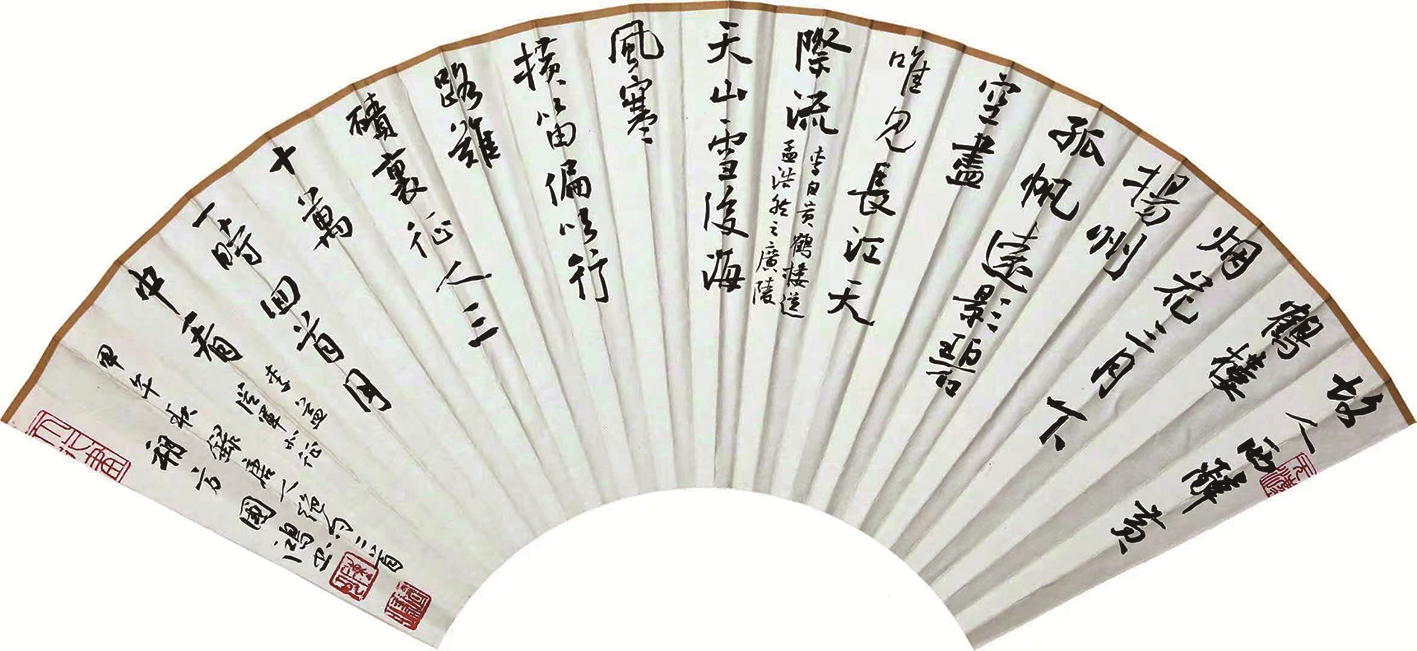 故人西辭黄
鶴樓
烟花三月下
揚州
孤帆遠影碧
空盡
唯見長江天
際流
李白黄鶴楼送
孟浩然之廣陵
天山雪後海
風寒
横笛偏吹行
路難
磧裏征人三
十萬
一時回首月
中看
李益
從軍北征
甲午秋錄唐人絕句二首
朔方國鴻書